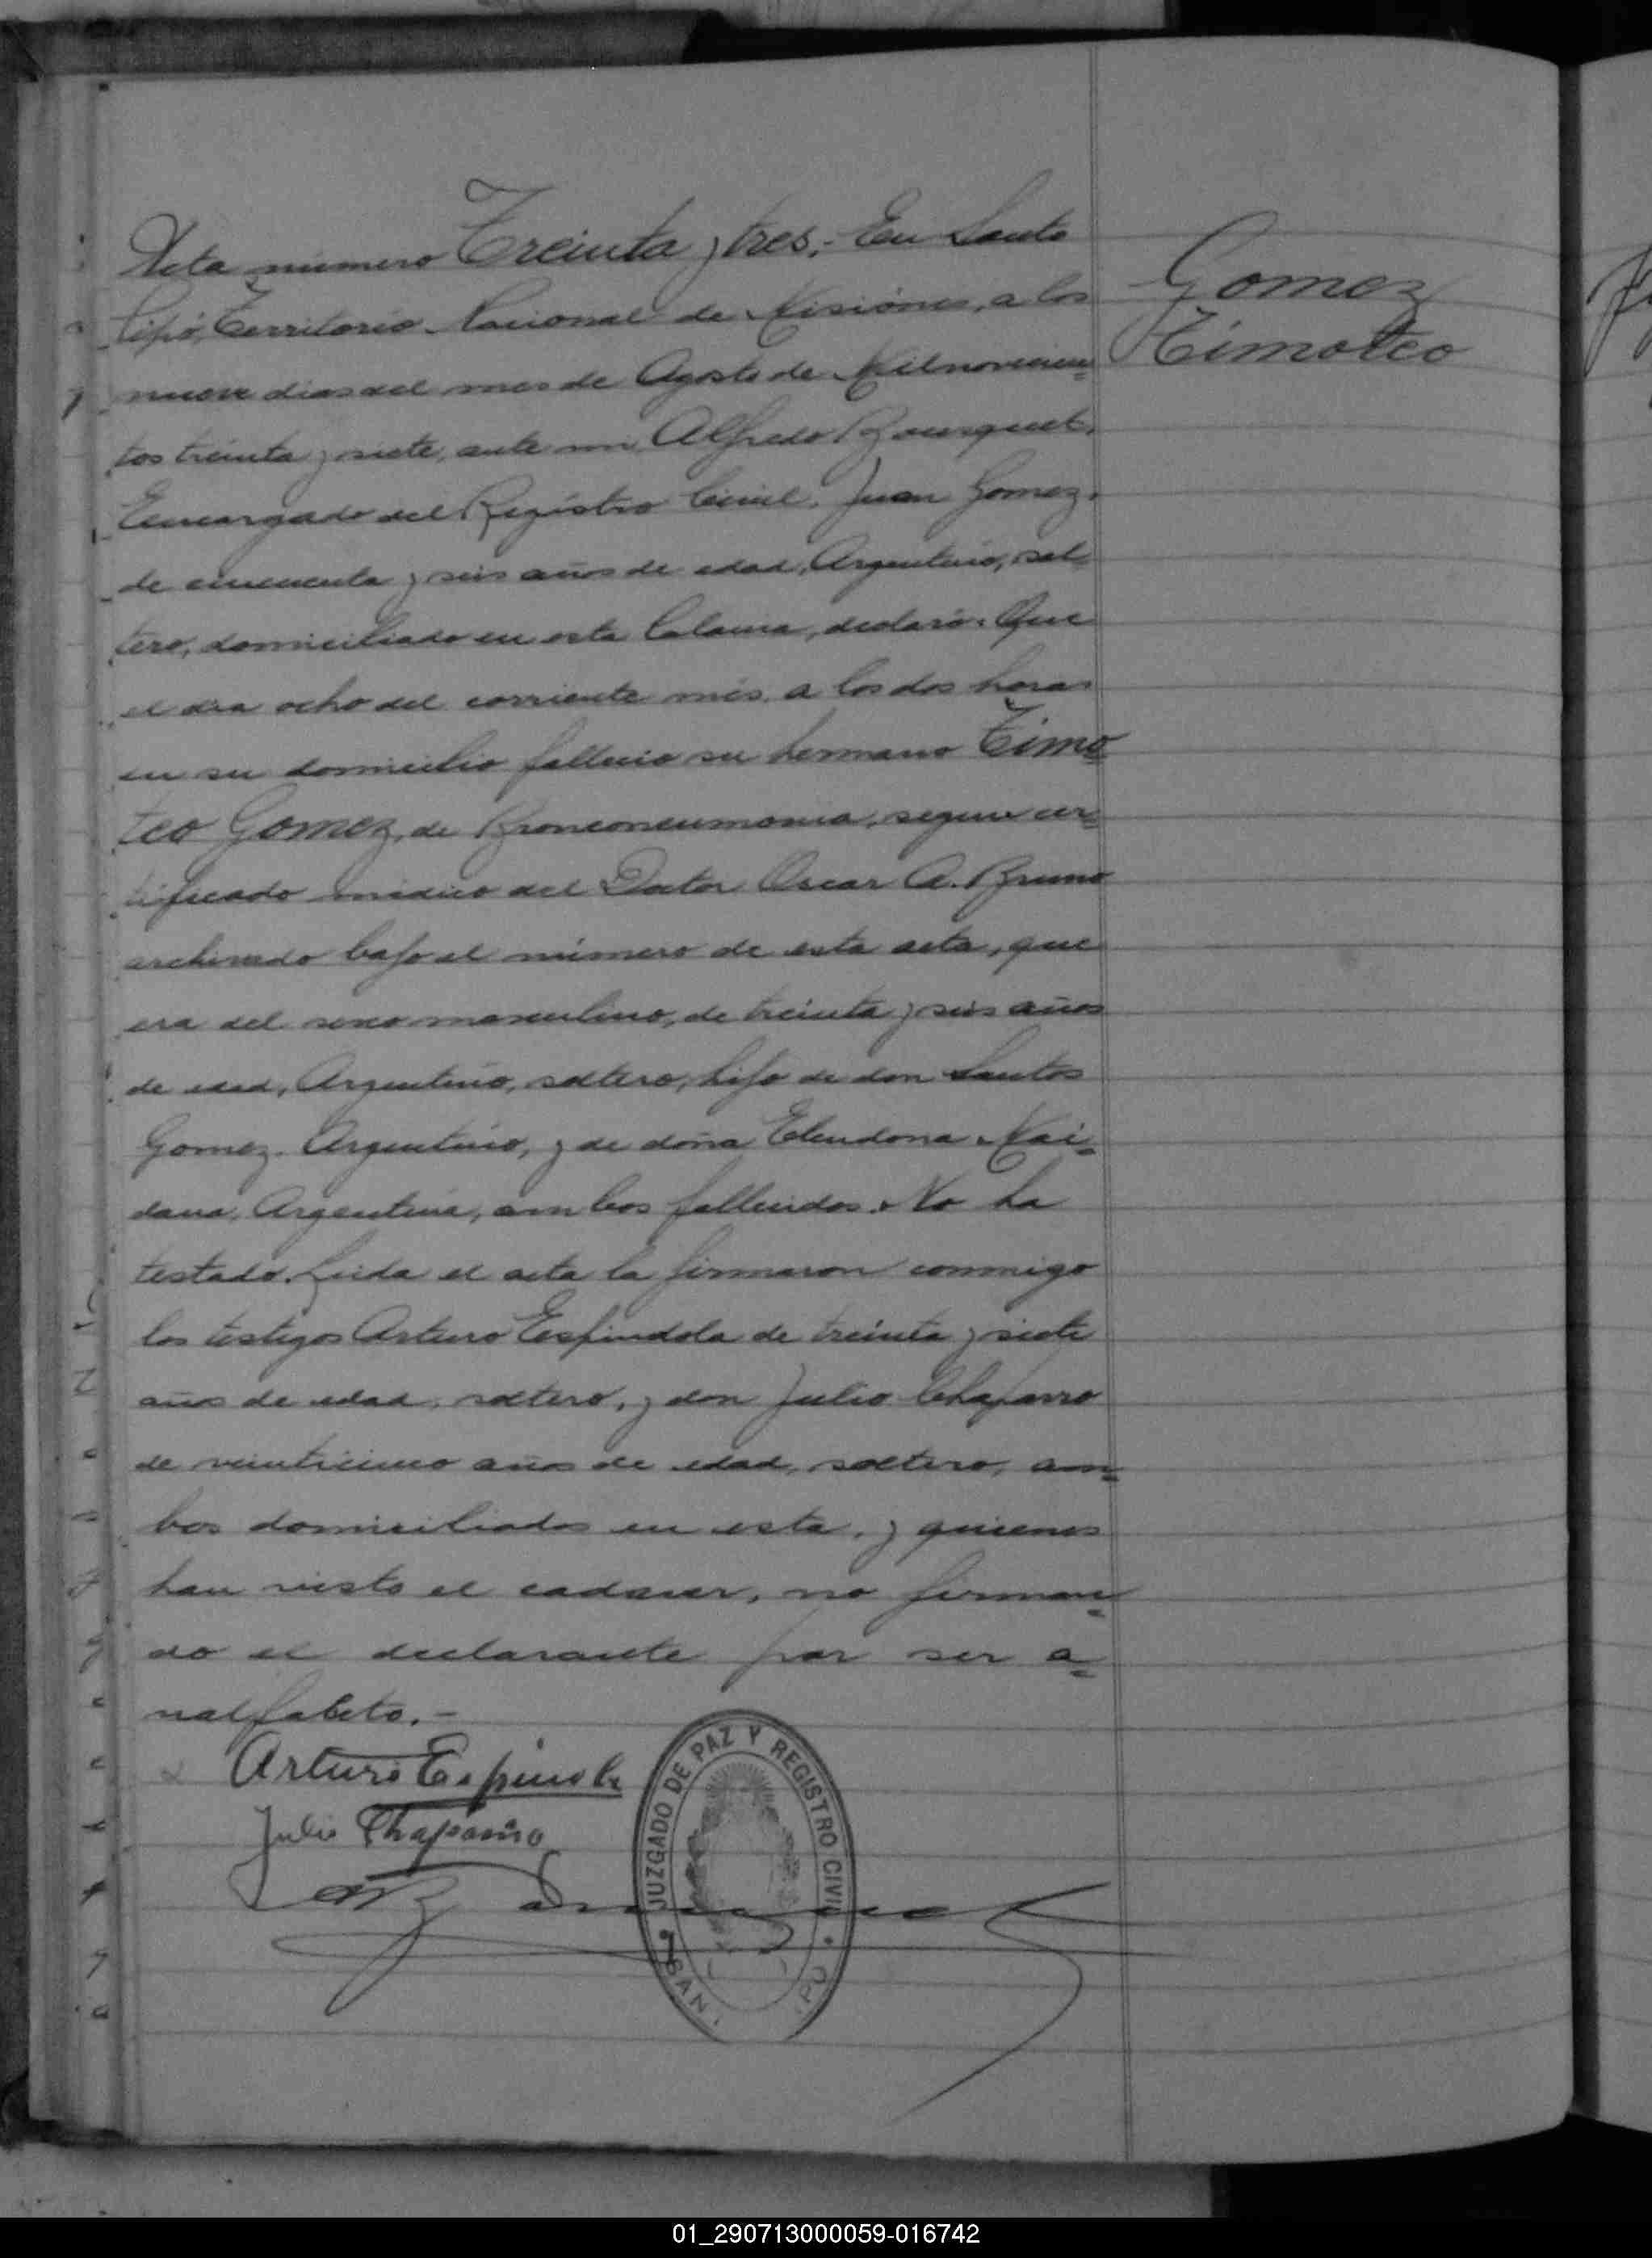 Acta número Treinta y tres.- En Santo
Pipó, Territorio Nacional de Misiónes, a los
nueve dias del mes de Agosto de Milnovecien=
tos treinta y siete, ante mi, Alfredo Bourquet,
Encargado del Registro Civil, Juan Gomez,
de cincuenta y seis años de edad, Argentino, sol=
tero, domiciliado en esta Colonia, declaró: Que
el dia ocho del corriente més, a los dos horas
en su domicilio fallecio su hermano Timo=
teo Gomez, de Bronconeumonia, segun cer=
tificado médico del Doctor Oscar A. Bruno
archivado bajo el número de esta acta, que
era del sexo masculino, de treinta y seis años
de edad, Argentino, soltero, hijo de don Santos
Gomez, Argentino, y de doña Elendona Mai=
dana, Argentina, ambos fallecidos. No ha
testado. Leida el acta la firmaron conmigo
los testigos Arturo Espindola de treinta y siete
años de edad, soltero, y don Julio Chaparro
de veinticinco años de edad, soltero, am=
bos domiciliados en esta, y quienes
han visto el cadaver, no firman=
do el declarante por ser a=
nalfabeto.-
Arturo Espindola
Julio Chaparro
JUZGADO DE PAZ Y REGISTRO CIVIL
Gomez
Timoteo
01_290713000059-016742